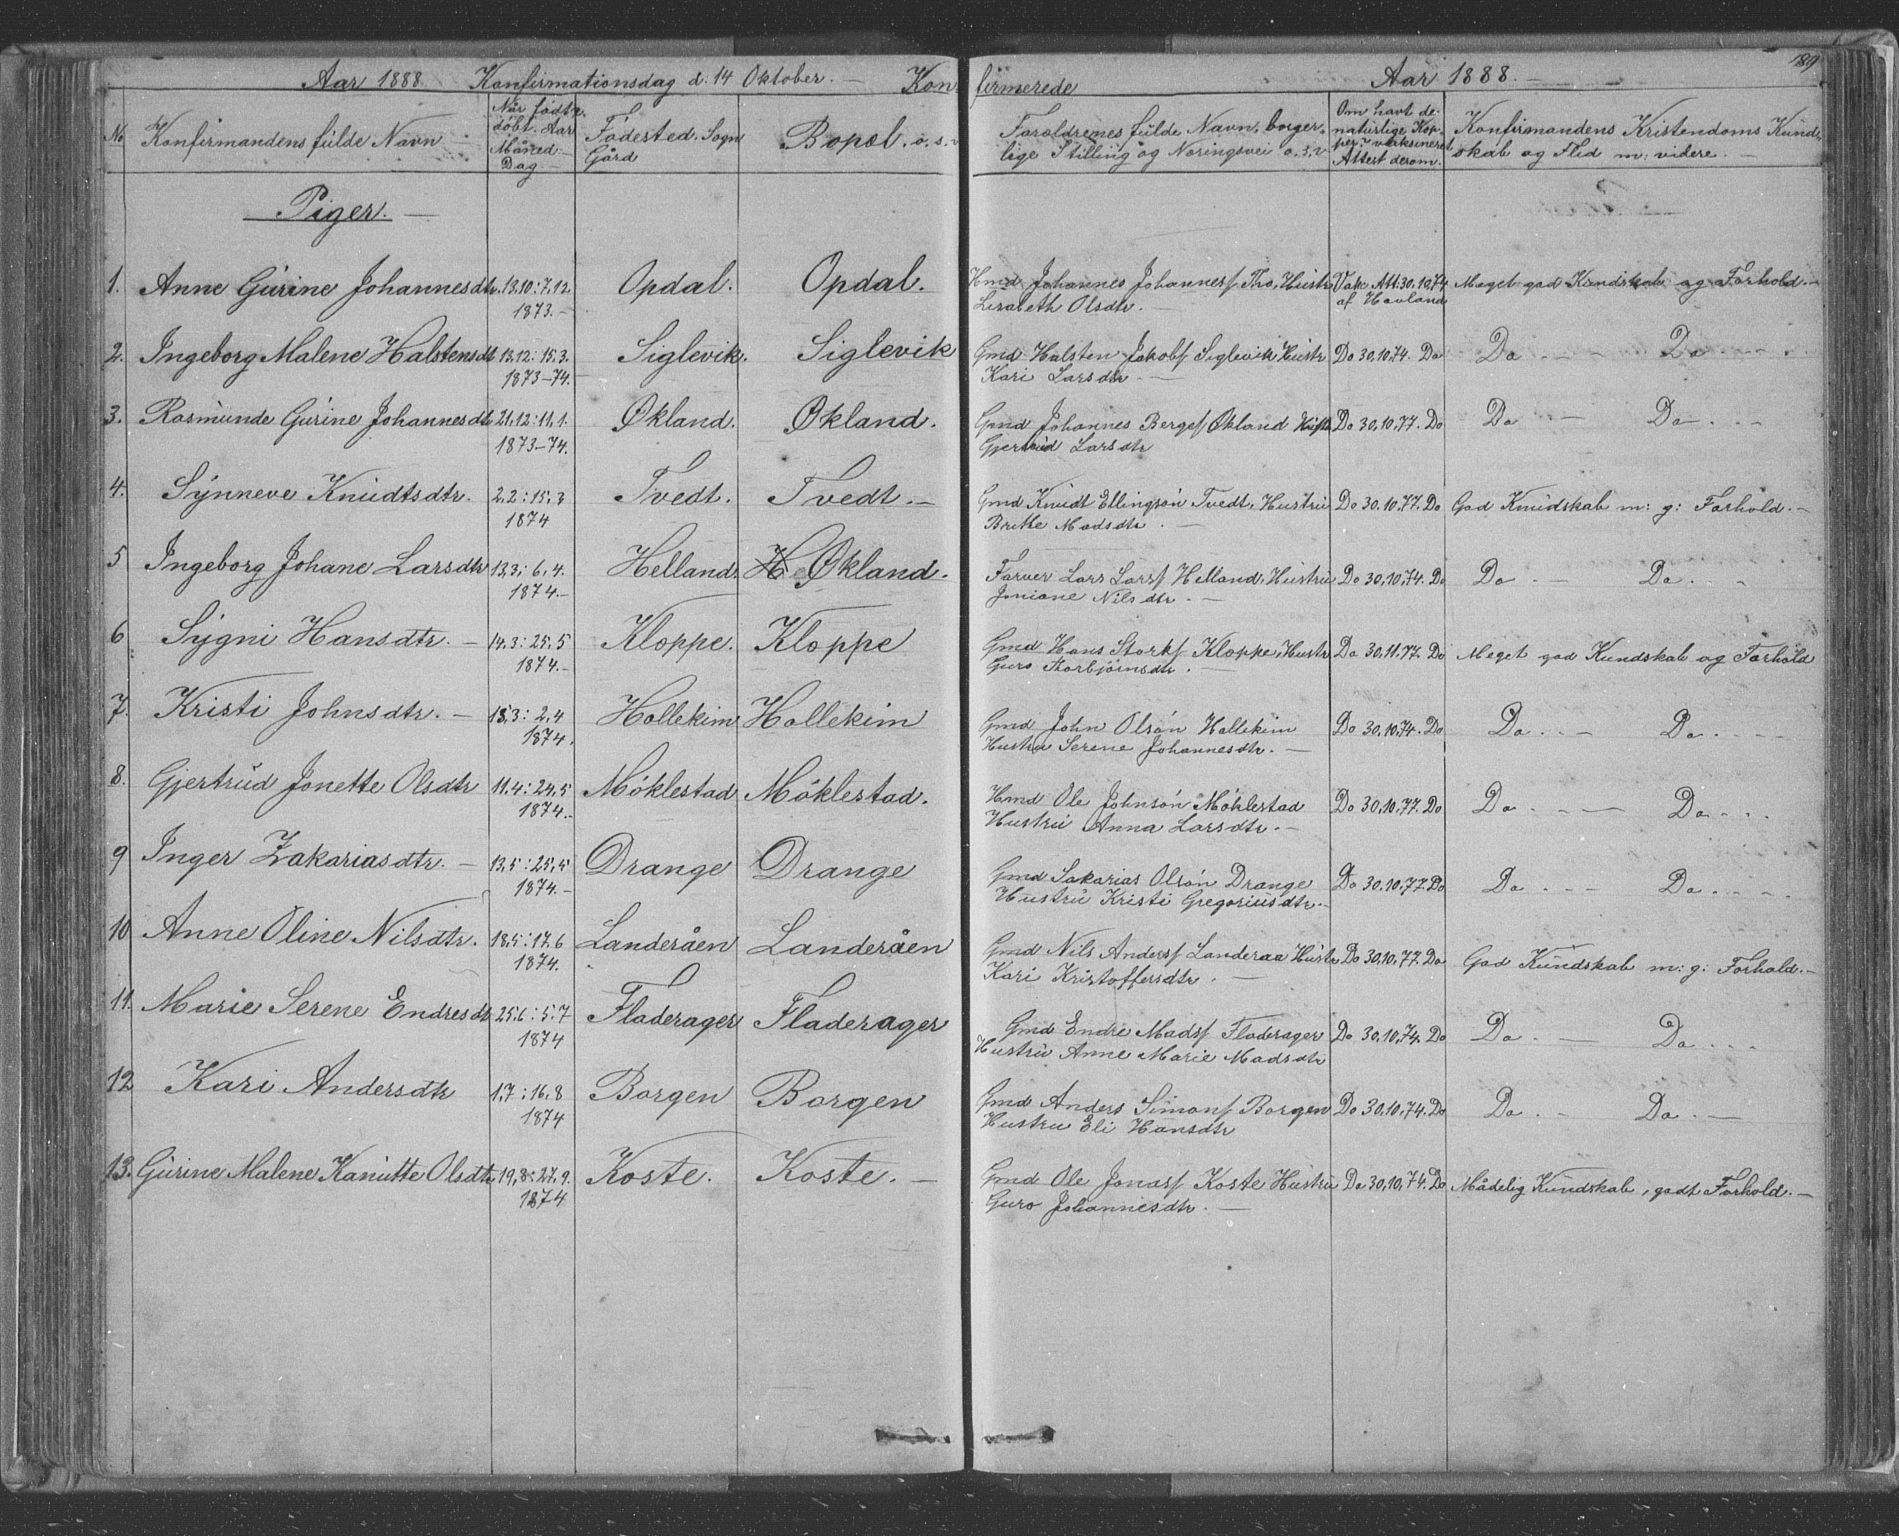 Aar 1888. Konfirmationsdag d: 14 Oktober. — Kon-
firmerede Aar 1888. — 189
No Konfirmandens fulde Navn
Når født o. døbt. Aar Måned Dag
Fødested. Sogn Gård
Bopæl. o. s. v
Forældrenes fulde Navn, borger-
lige Stilling og Næringsvei o. s. v
Om havt de naturlige Kopper, vaksineret Attest derom.
Konfirmandens Kristendoms Kund-
skab og Flid m: videre. —
Piger. —
1. Anne Gurine Johannesdtr. 13.10:7.12. Opdal. Opdal. Hmd Johannes Johanness Tho, Hustr Vak. Att. 30.10.74 Meget god Kundskab og Forhold. —
1873. — Lisabeth Olsdtr. — af Havland
2. Ingeborg Malene Halstensdt 13.12:15.3. Siglevik. Siglevik Gmd Halsten Jakobs Siglevik Hustr Do 30.10.74. Do Do — - Do - - -
1873-74. Kari Larsdtr. —
3. Rasmunde Gurine Johannesdt 21.12:11.1. Økland. Økland. Gmd Johannes Berges Økland Hust Do 30.10.77. Do Do — Do - - -
1873-74. Gjertrud Larsdtr
4. Synneve Knudtsdtr. 2.2:15.3 Tvedt. Tvedt. — Gmd Knudt Ellingsøn Tvedt, Hustru Do 30.10.77. Do God Kundskab m: g: Forhold. —
1874 Brithe Madsdtr. —
5 Ingeborg Johane Larsdtr 13.3:6.4. Helland. H Økland. Farver Lars Larss Helland, Hustru Do 30.10.74. Do Do - — Do - -
1874. — Joniane Nilsdtr. —
6 Sygni Hansdtr. — 14.3:25.5 Kloppe. Kloppe Gmd Hans Storks Kloppe, Hustr Do 30.11.77. Do Meget god Kundskab og Forhold
1874. — Guro Storbjørnsdtr. —
7. Kristi Johnsdtr. — 15.3:2.4 Hallekim Hallekim Gmd John Olsøn Hallekim Do 30.10.74. Do Do - — Do - - -
1874. Hustru Serene Johannesdtr. —
8. Gjertrud Jonette Olsdtr 11.4:24.5 Møklestad Møklestad. Hmd Ole Johnsøn Møklestad Do 30.10.77. Do Do - — Do - - -
1874. Hustru Anna Larsdtr. —
9 Inger Zakariasdtr. — 13.5:25.5 Drange Drange Gmd Sakarias Olsøn Drange Do 30.10.77. Do Do - — Do - - -
1874. — Hustru Kristi Gregoriusdtr. —
10 Anne Oline Nilsdtr. 18.5:17.6 Landeråen Landeråen Gmd Nils Anderss Landeraa Hustr Do 30.10.77. Do God Kundskab m: g: Forhold. —
1874. Kari Kristoffersdtr. —
11. Marie Serene Endresdt 25.6:5.7 Fladerager Fladerager Gmd Endre Madss Fladerager Do 30.10.74. Do Do - — Do - - -
1874 Hustru Anne Marie Madsdtr
12 Kari Andersdtr 1.7:16.8 Borgen Borgen Gmd Anders Simons Borgen Do 30.10.74. Do Do - — Do - —
1874 Hustru Eli Hansdtr
13. Gurine Malene Kanutte Olsdtr 19.8:27.9. Koste. Koste. — Gmd Ole Jonass Koste Hustru Do 30.10.74. Do Mådelig Kundskab, godt Forhold. —
1874 Guro Johannesdtr. —